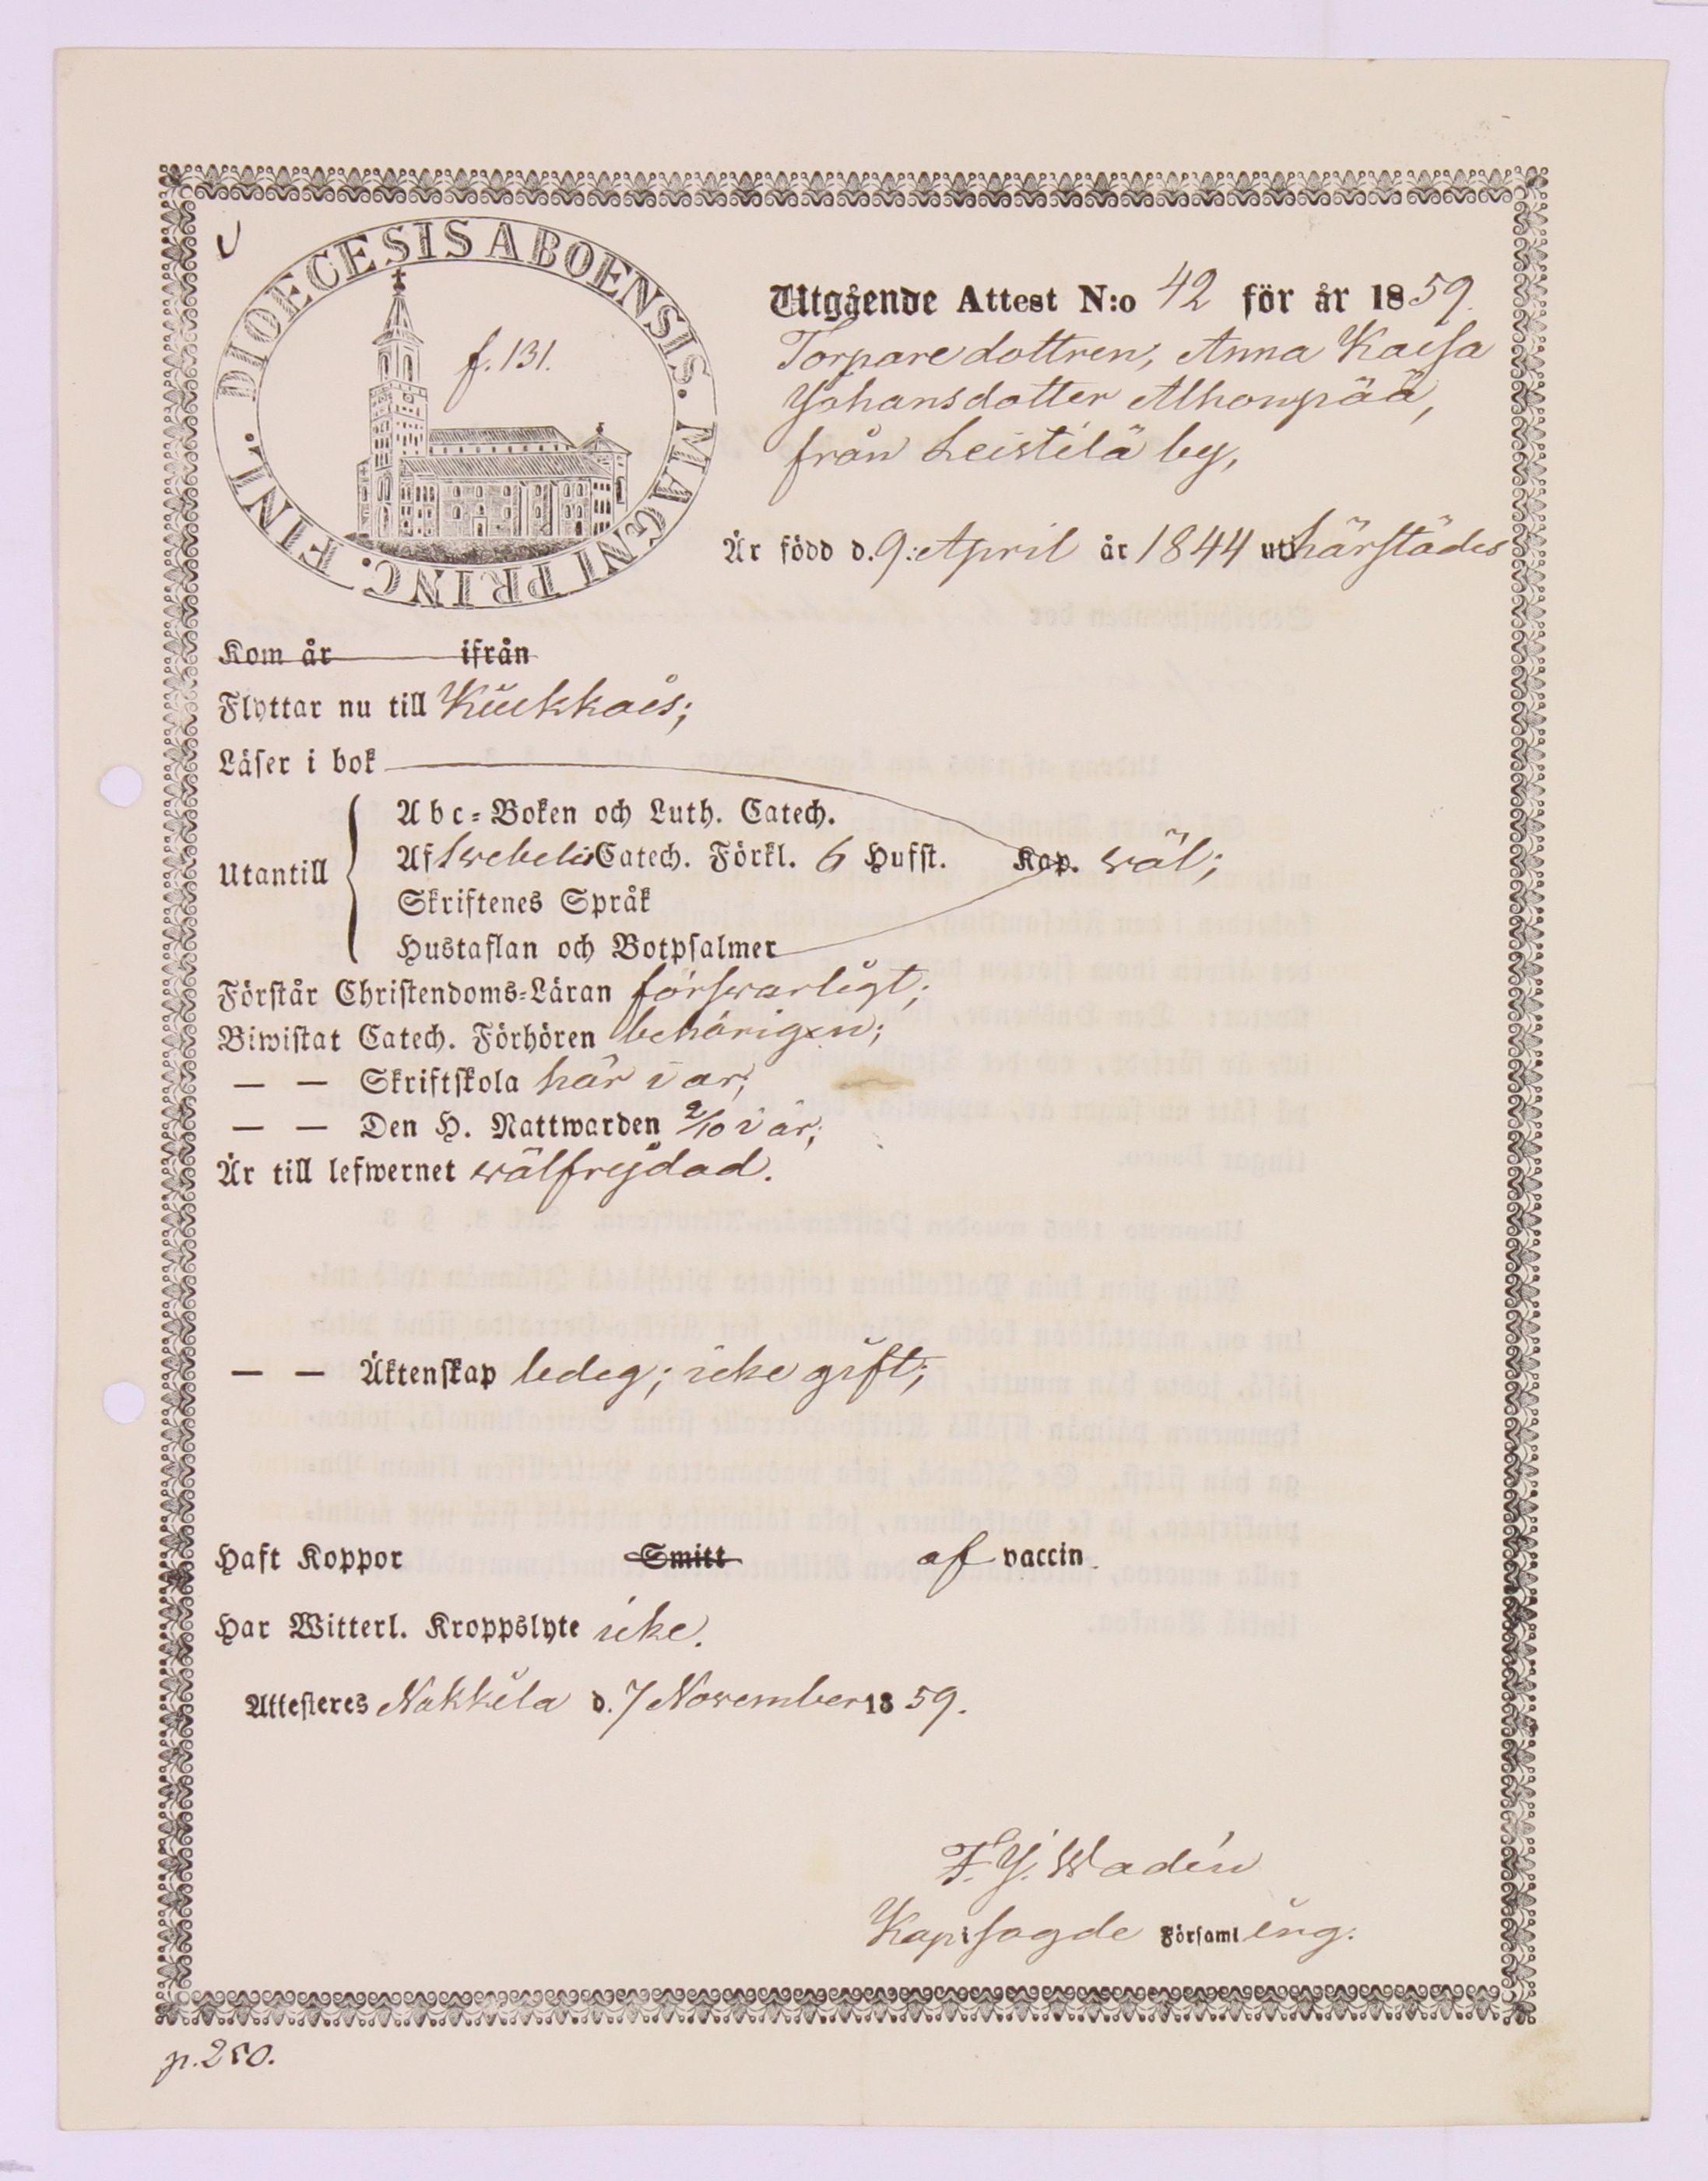 DIOECESIS ABOENSIS. MAGNI PRINC. FINL.
f. 131.
Utgående Attest N:o 42 för år 1859.
Torparedottren, Anna Kaisa
Johansdotter Alhonpää,
från Leistilä by,
Är född d. 9: April år 1844 uti härstädes
Kom år ifrån
Flyttar nu till Kiukkais;
Läser i bok
Utantill
Abc-Boken och Luth. Catech.
Af Swebelii Catech. Förkl. 6 Hufst. Kap. wäl;
Skriftenes Språk
Hustaflan och Botpsalmer
Förstår Christendoms-Läran förswarligt;
Biwistat Catech. Förhören behörigen;
— — Skriftskola här i år;
— — Den H. Nattwarden 2/10 i år;
Är till lefwernet wälfrejdad.
— — Äktenskap ledig; icke gift;
Haft Koppor Smitt af vaccin.
Har Witterl. Kroppslyte icke.
Attesteres Nakkila d. 7 November 1859.
F. J. Wadén
Kap. i sagde Församling.
p. 250.